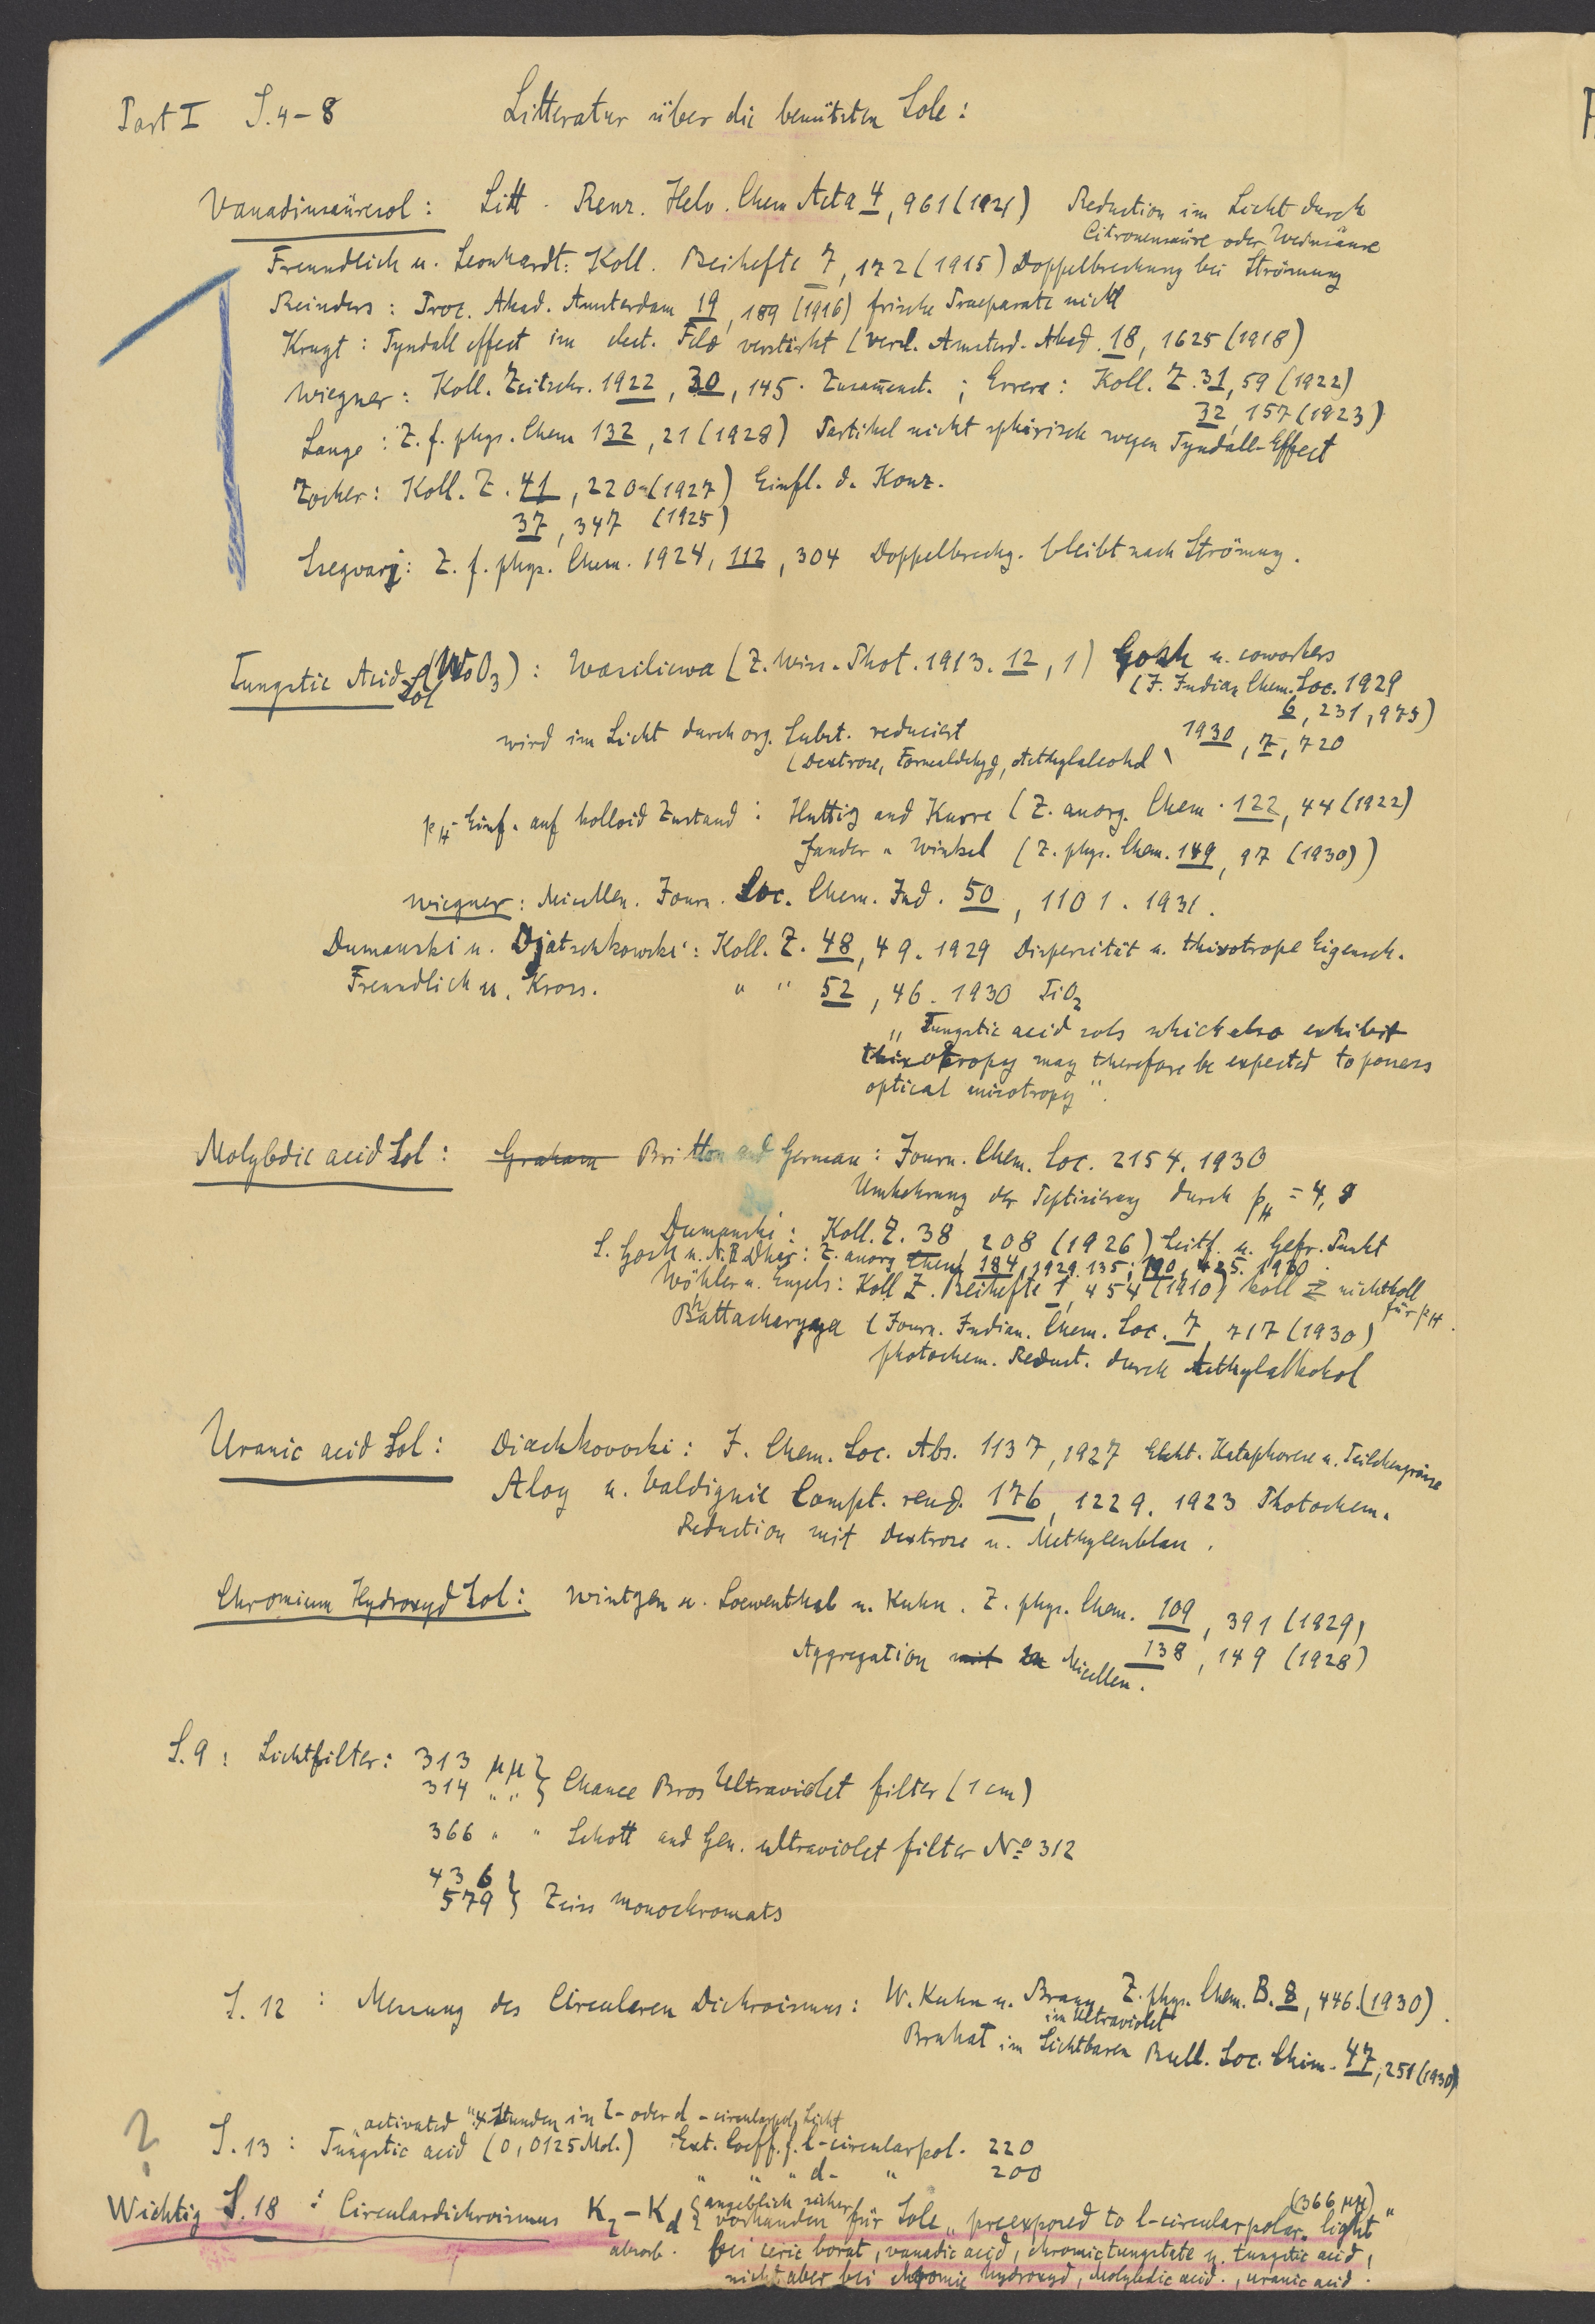 Part I S. 4-8 Litteratur über die benützten Sole:
Vanadinsäuresol: Litt. Renz. Helv. Chem Acta 4, 961 (1921) Reduction im Licht durch
Citronensäure oder Weinsäure
Freundlich u. Leonhardt: Koll. Beihefte 7, 172 (1915) Doppelbrechung bei Strömung
Reinders: Proc. Akad. Amsterdam 19, 189 (1916) frische Praeparate nicht
Kruyt: Tyndall effect im elect. Feld verstärkt (Versl. Amsterd. Akad. 18, 1625 (1918)
Wiegner: Koll. Zeitschr. 1922, 30, 145. Zusam̄enst.; Errera: Koll. Z. 31, 59 (1922)
32, 157 (1923)
Lange: Z. f. phys. Chem 132, 21 (1928) Partikel nicht sphärisch wegen Tyndall-Effect
Zocher: Koll. Z. 41, 220 (1927) Einfl. d. Konz.
37, 347 (1925)
Szegvarj: Z. f. phys. Chem. 1924, 112, 304 Doppelbrechg. bleibt nach Strömung.
Tungstic Acid Sol (WoO3): Wasiliewa (Z. Wiss. Phot. 1913. 12, 1) Gosh u. coworkers
(J. Indian Chem. Soc. 1929
6, 231, 975)
wird im Licht durch org. Subst. reduciert 1930, 7, 720
(Dextrose, Formaldehyd, Aethylalcohol)
pH-Einf. auf kolloid Zustand: Huttig and Kurre (Z. anorg. Chem. 122, 44 (1922)
Jander u Winkel (Z. phys. Chem. 149, 97 (1930))
Wiegner: Micellen. Journ. Soc. Chem. Ind. 50, 1101. 1931.
Dumanski u. Djatschkowski: Koll. Z. 48, 49. 1929 Dispersität u. thixotrope Eigensch.
Freundlich u. Kross. " " 52, 46. 1930 TiO2
„Tungstic acid sols which also exhibit
thixotropy may therefore be expected to possess
optical anisotropy".
Molybdic acid Sol: Graham Britton and German: Journ. Chem. Soc. 2154. 1930
Umkehrung der Peptisierung durch pH = 4,8
Dumanski: Koll. Z. 38 208 (1926) Leitf. u. Gefr. Punkt
S. Gosh u. N. R Dhar: Z. anorg Chem 184, 1929. 135; 190, 425. 1930.
Wöhler u. Engels: Koll Z. Beihefte 1, 454 (1910) koll ⇄ nichtkoll
für pH.
Bhattacharyya (Journ. Indian. Chem. Soc. 7, 717 (1930)
photochem. Reduct. durch Aethylalkohol
Uranic acid Sol: Diachkovski: J. Chem. Soc. Abs. 1137, 1927 Elekt. Kataphorese u. Teilchengrösse
Aloy u. Valdignie Compt. rend. 176, 1229. 1923 Photochem.
Reduction mit Dextrose u. Methylenblau.
Chromium Hydroxyd Sol: Wintgen u. Loewenthal u. Kuhn. Z. phys. Chem. 109, 391 (1929)
138, 149 (1928)
Aggregation mit zu Micellen.
S. 9: Lichtfilter: 313 μμ }
314 " " } Chance Bros Ultraviolet filter (1 cm)
366 " " Schott and Gen. ultraviolet filter No 312
436 }
579 } Zeiss monochromats
S. 12: Messung des Circularen Dichroismus: W. Kuhn u. Braun Z. phys. Chem. B. 8, 446. (1930).
im Ultraviolet
Bruhat im Sichtbaren Bull. Soc. Chim. 47, 251 (1930)
„activated" 4 Stunden in l- oder d-circularpol. Licht
? S. 13: Tungstic acid (0,0125 Mol.) Ext. Coeff. f. l-circularpol. 220
" " " d- " 200
Wichtig S. 18: Circulardichroismus Kl - Kd { angeblich sicher (366 μμ)
vorhanden für Sole „preexposed to l-circularpolar. light"
absorb. bei ceric borat, vanadic acid, chromictungstate u. tungstic acid,
nicht aber bei chromic hydroxyd, Molybdic acid., uranic acid.